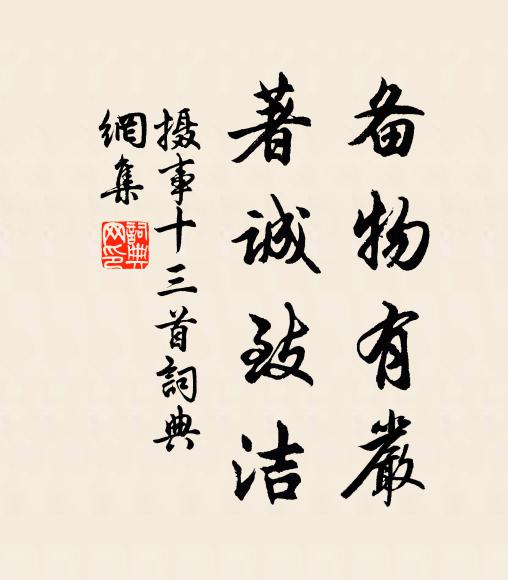 备物有嚴
著誠致洁
摄事十三首詞典
網集
詞典网印